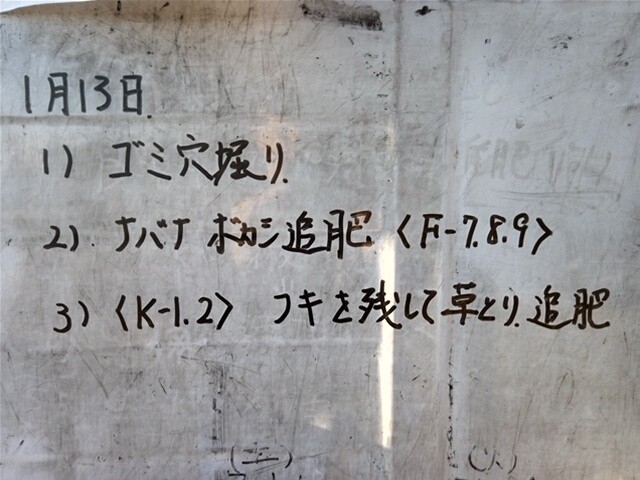 1月13日.
1) ゴミ穴掘り.
2). ナバナ ボカシ追肥 〈F-7.8.9〉
3) 〈K-1.2〉 フキを残して草とり. 追肥